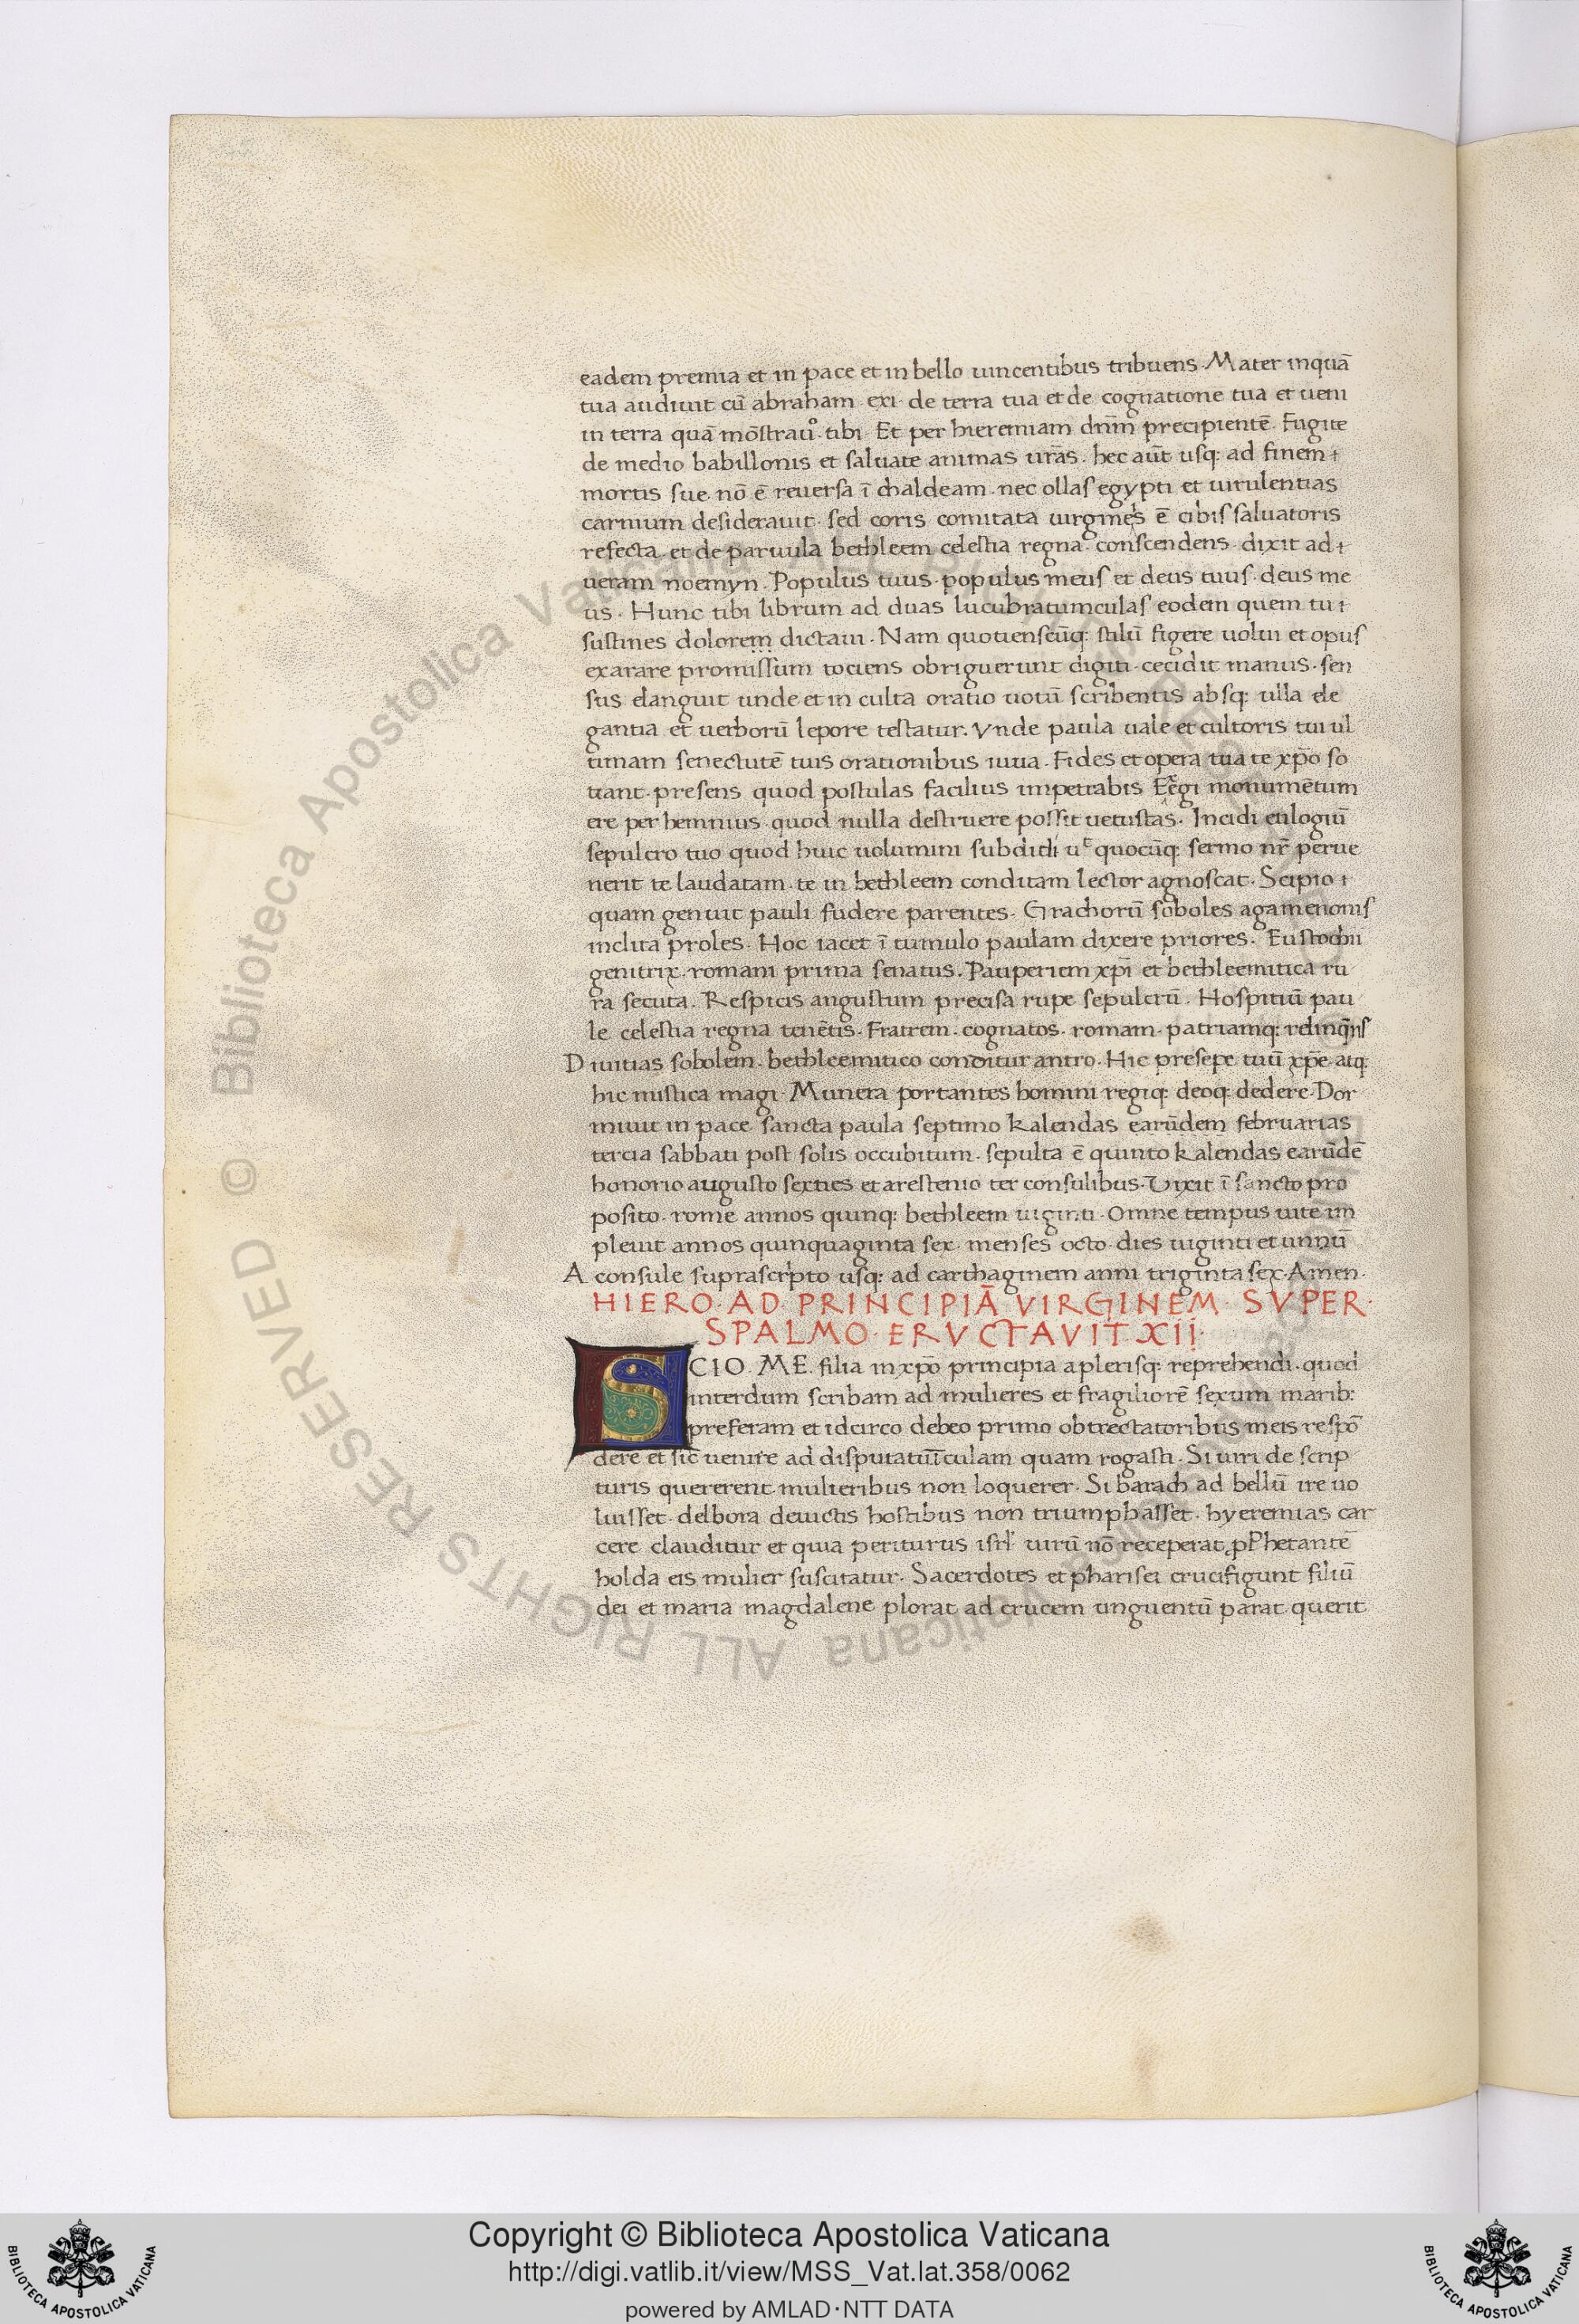 eadem premia et in pace et in bello uincentibus tribuens. Mater inquā
tua audiuit cū abraham. exi. de terra tua et de cognatione tua et ueni
in terra quā mōstrauᵒ. tibi. Et per hieremiam dn̄m precipientē. Fugite
de medio babillonis et saluate animas ur̄as. hec aūt usq: ad finem
mortis sue. nō ē reuersa ī chaldeam. nec ollas egypti et uirulentias
carnium desiderauit. sed coris comitata uirgineis ē cibis saluatoris
refecta. et de paruula bethleem celestia regna. conscendens. dixit ad
ueram noemyn. Populus tuus. populus meus et deus tuus. deus me
us. Hunc tibi librum ad duas lucubratiumculas eodem quem tu
sustines dolorem dictaui. Nam quotienscūq: stilū figere uolui et opus
exarare promissum tociens obriguerunt digiti. cecidit manus. sen
sus elanguit unde et in culta oratio uotū scribentis absq: ulla ele
gantia et uerborū lepore testatur. Vnde paula uale et cultoris tui ul
timam senectutē tuis orationibus iuua. Fides et opera tua te xp̄o so
tiant. presens quod postulas facilius impetrabis Exegi monumētum
ere per hemnius. quod nulla destruere possit uetustas. Incidi eulogiū
sepulcro tuo quod huic uolumini subdidi uᵗ quocūq: sermo nr̄ perue
nerit te laudatam. te in bethleem conditam lector agnoscat. Scipio
quam genuit pauli fudere parentes. Grachorū soboles agamenonis
inclita proles. Hoc iacet ī tumulo paulam dixere priores. Eustochii
genitrix. romani prima senatus. Pauperiem xp̄i et bethleemitica ru
ra secuta. Respicis angustum precisa rupe sepulcrū. Hospitiū pau
le celestia regna tenētis. Fratrem. cognatos. romam. patriamq: relinq̄ns
Diuitias sobolem. bethleemitico conditur antro. Hic presepe tuū xp̄e. atq:
hic mistica magi. Munera portantes homini regiq: deoq: dedere. Dor
miuit in pace sancta paula septimo kalendas earūdem februarias
tercia sabbati post solis occubitum. sepulta ē quinto kalendas earūdē
honorio augusto sexties et arestenio ter consulibus. Vixit ī sancto pro
posito. rome annos quinq: bethleem uiginti. Omne tempus uite im
pleuit annos quinquaginta sex. menses octo. dies uiginti et unnū
A consule suprascripto usq: ad carthaginem anni triginta sex. Amen.
HIERO. AD. PRINCIPIĀ VIRGINEM. SVPER.
SPALMO. ERVCTAVIT XII.
SCIO. ME. filia in xp̄o principia a plerisq: reprehendi. quod
interdum scribam ad mulieres et fragiliorē sexum marib:
preferam et idcirco debeo primo obtrectatoribus meis respō
dere et sic uenire ad disputatiūculam quam rogasti. Si uiri de scrip
turis quererent. mulieribus non loquerer. Si barach ad bellū ire uo
luisset. delbora deuictis hostibus non triumphasset. hyeremias car
cere clauditur et quia periturus isrl' uirū nō receperat pPhetantē
holda eis mulier suscitatur. Sacerdotes et pharisei crucifigunt filiū
dei et maria magdalene plorat ad crucem unguentū parat querit
Copyright © Biblioteca Apostolica Vaticana
http://digi.vatlib.it/view/MSS_Vat.lat.358/0062
powered by AMLAD·NTT DATA
BIBLIOTECA APOSTOLICA VATICANA
BIBLIOTECA APOSTOLICA VATICANA
© Biblioteca Apostolica Vaticana ALL RIGHTS RESERVED